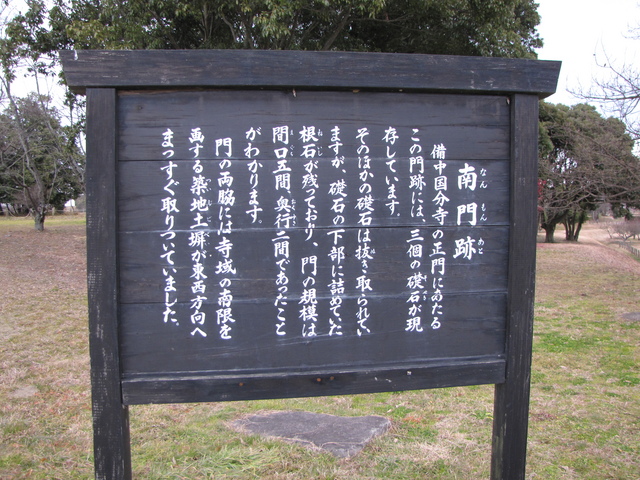 南門跡
備中国分寺の正門にあたる
この門跡には、三個の礎石が現
存しています。
そのほかの礎石は抜き取られてい
ますが、礎石の下部に詰めていた
根石が残っており、門の規模は
間口五間、奥行二間であったこと
がわかります。
門の両脇には寺域の南限を
画する築地土塀が東西方向へ
まっすぐ取りついていました。